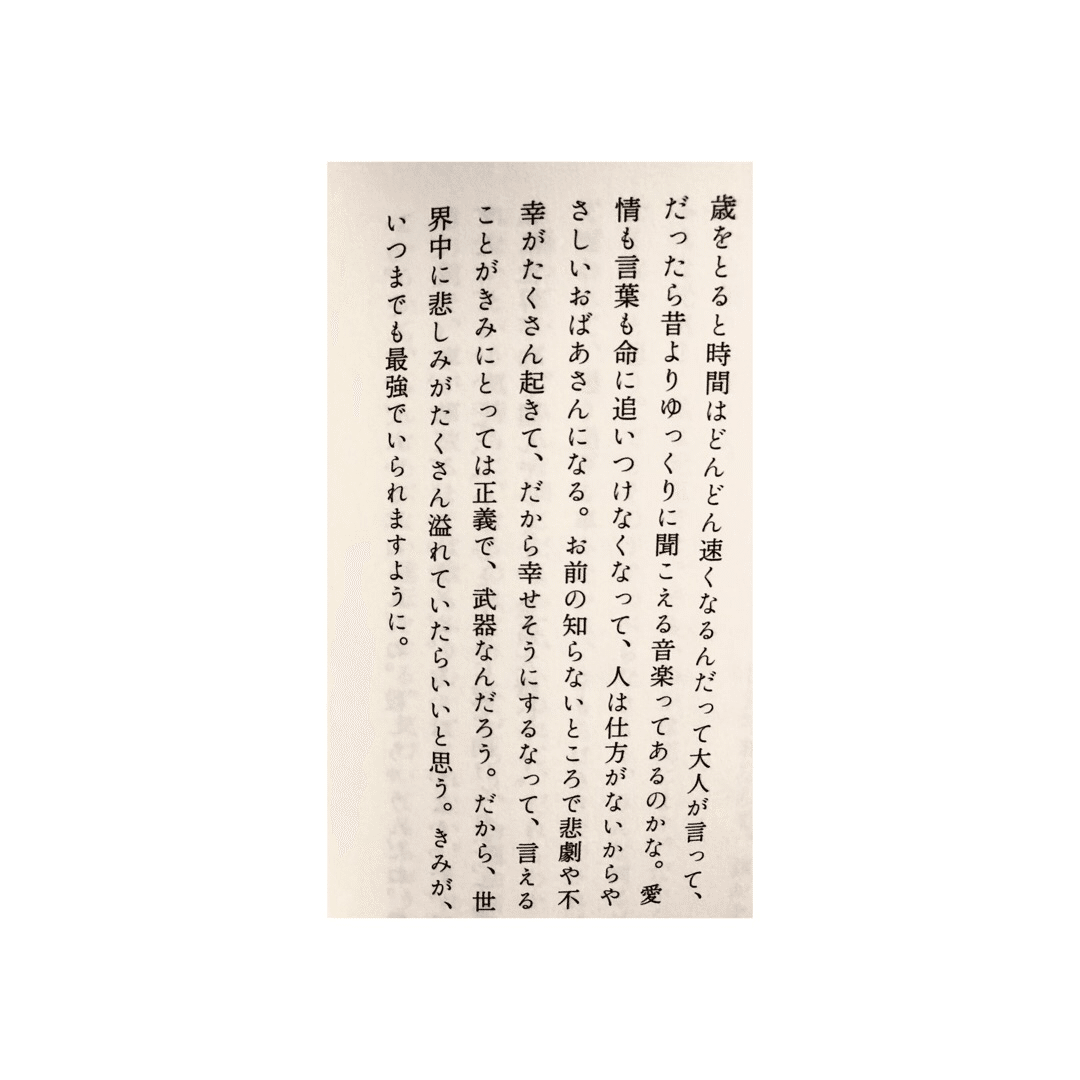 歳をとると時間はどんどん速くなるんだって大人が言って、
だったら昔よりゆっくりに聞こえる音楽ってあるのかな。愛
情も言葉も命に追いつけなくなって、人は仕方がないからや
さしいおばあさんになる。お前の知らないところで悲劇や不
幸がたくさん起きて、だから幸せそうにするなって、言える
ことがきみにとっては正義で、武器なんだろう。だから、世
界中に悲しみがたくさん溢れていたらいいと思う。きみが、
いつまでも最強でいられますように。